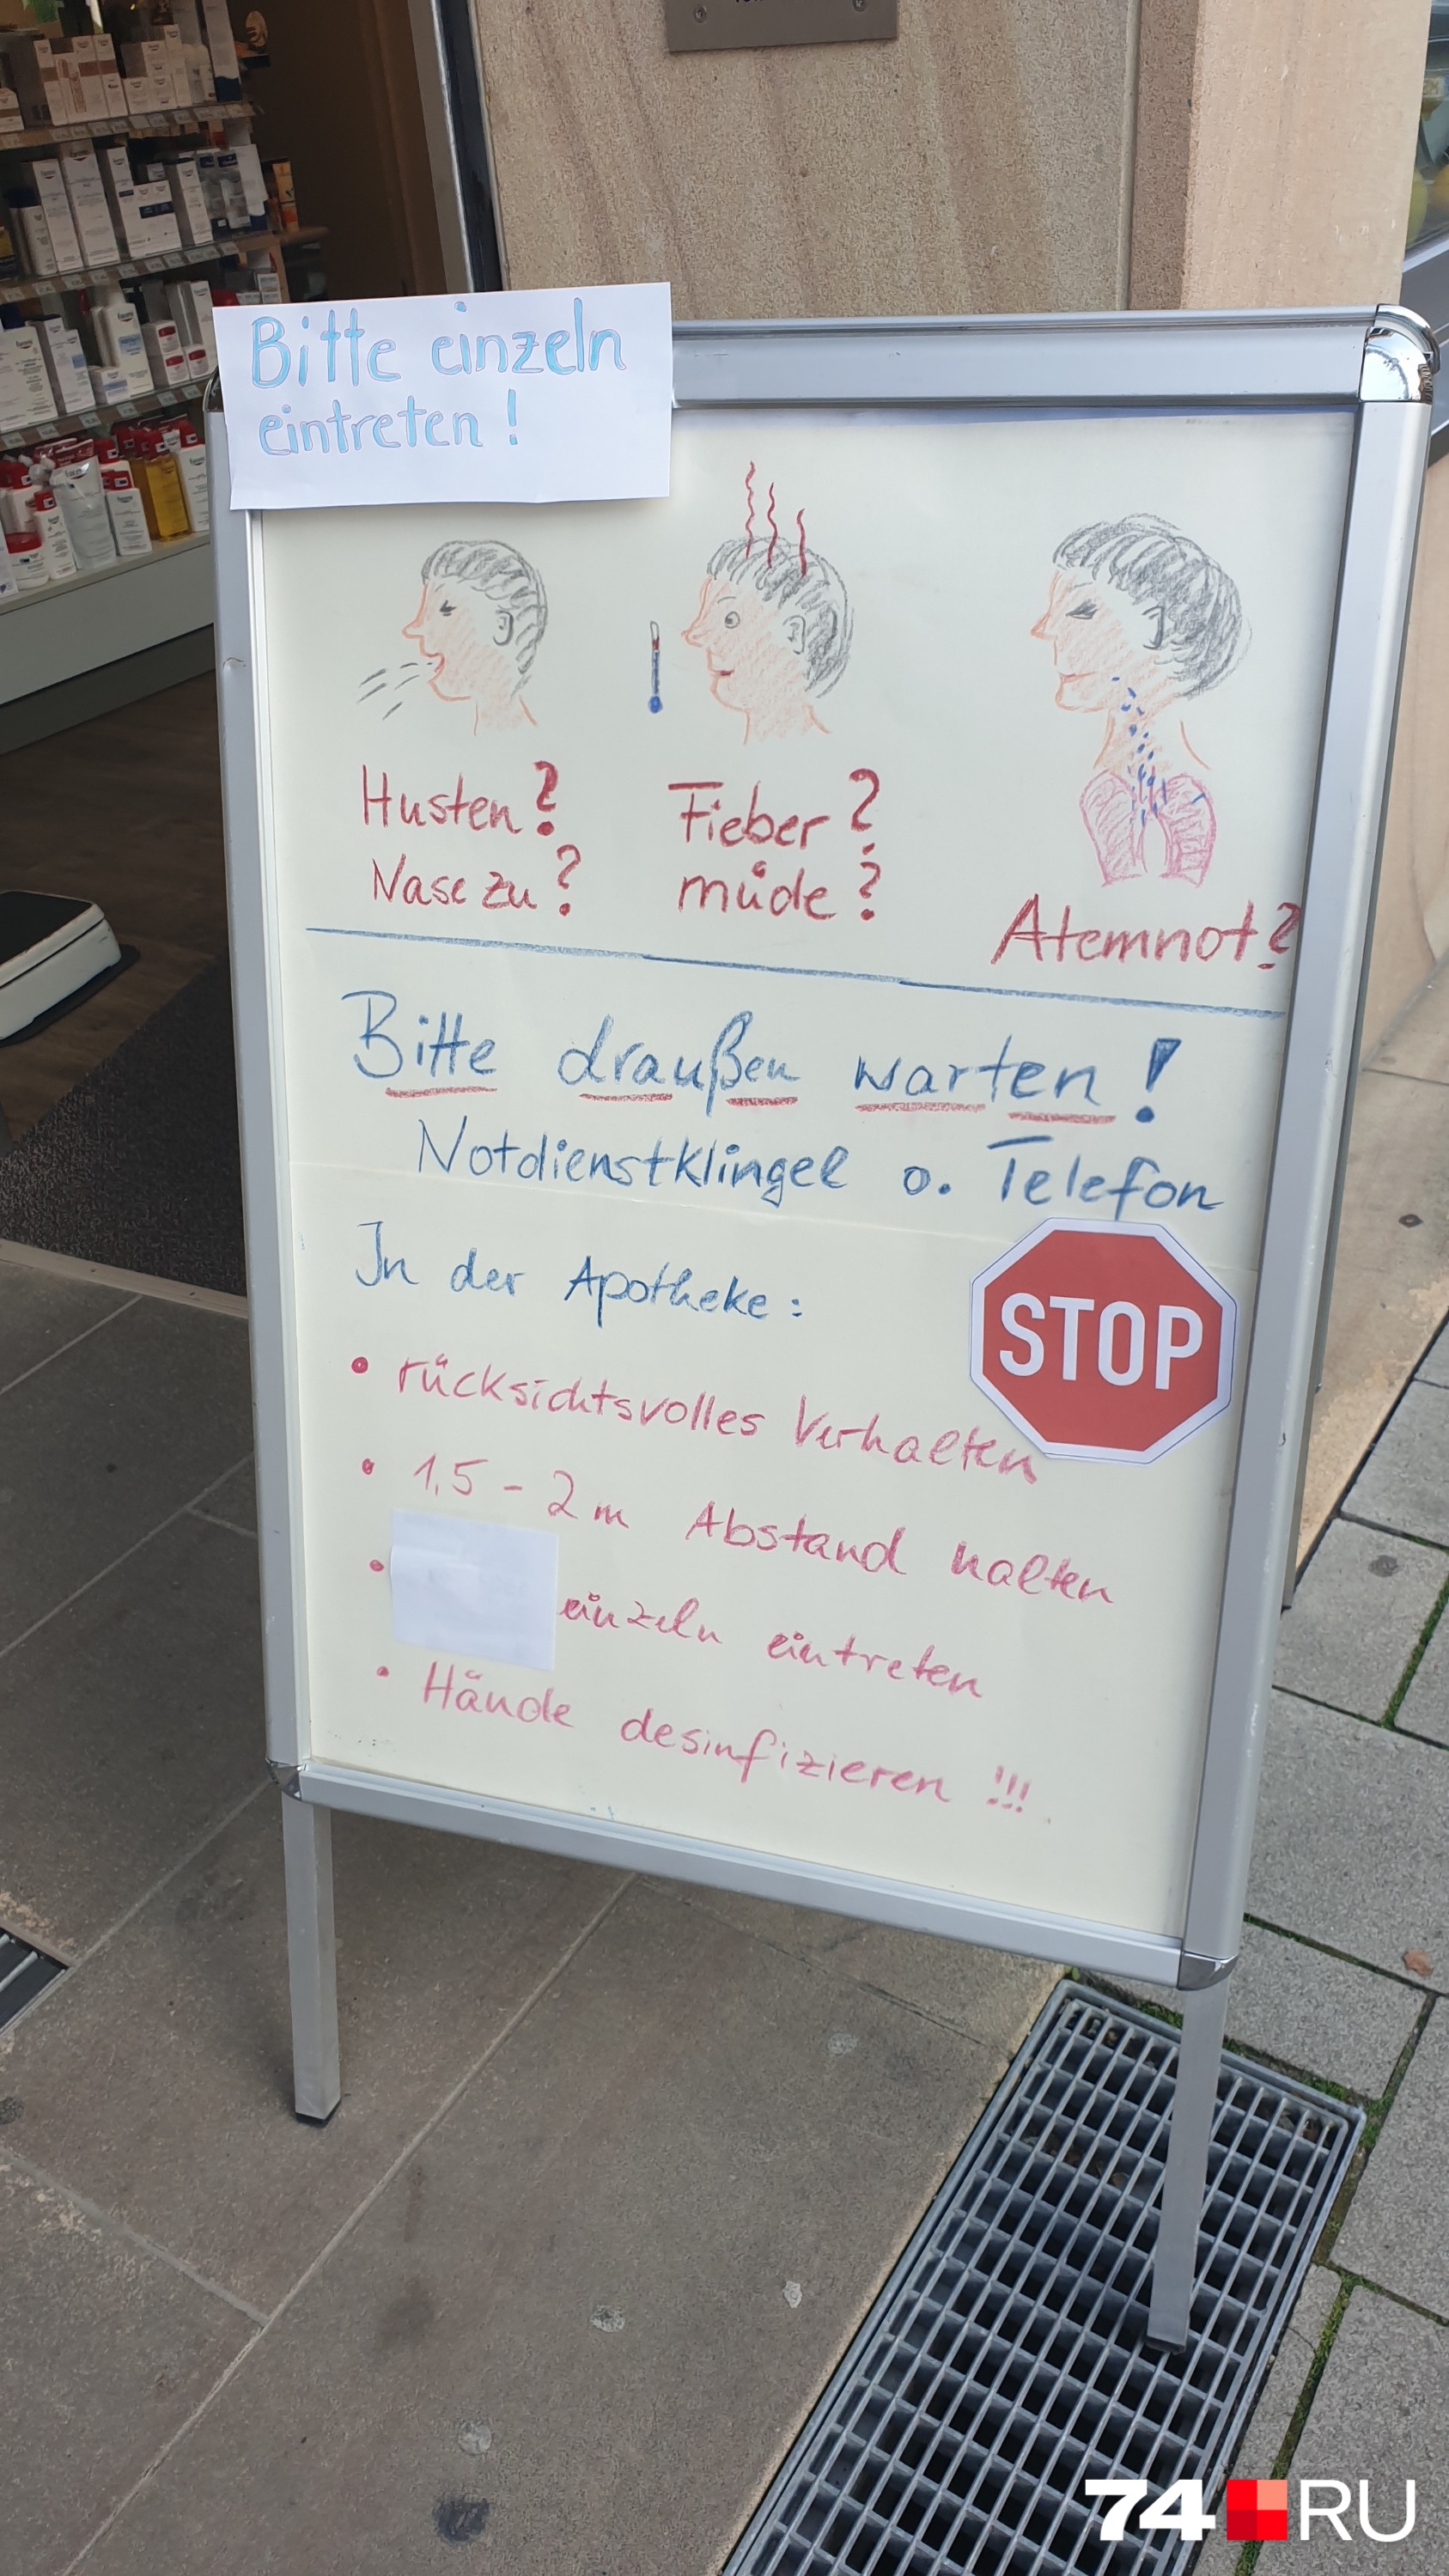 Bitte einzeln
eintreten!
Husten?
Nase zu?
Fieber?
müde?
Atemnot?
Bitte draußen warten!
Notdienstklingel o. Telefon
In der Apotheke:
STOP
• rücksichtsvolles Verhalten
• 1,5 - 2 m Abstand halten
• einzeln eintreten
• Hände desinfizieren !!!
74 RU